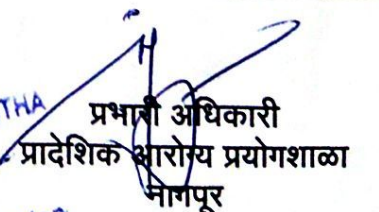 THA
प्रभारी अधिकारी
प्रादेशिक आरोग्य प्रयोगशाळा
नागपूर